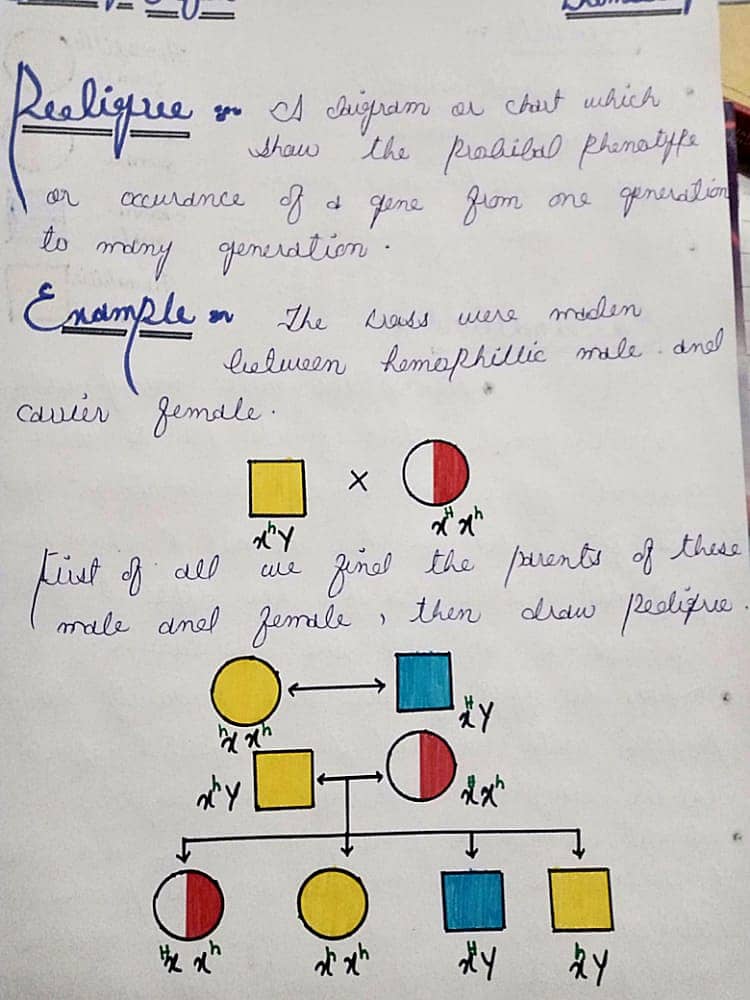 Pedigree :- A diagram or chart which
show the prohibal phenotype
or occurance of a gene from one generation
to many generation.
Example :- The cross were maden
between hemophillic male and
carrier female.
×
XʰY X^H Xʰ
First of all we find the parents of these
male and female, then draw Pedigree.
ʰX Xʰ X^H Y
XʰY X^H Xʰ
^H X Xʰ Xʰ Xʰ X^H Y ʰX Y